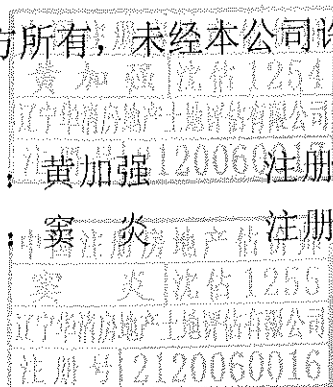 方所有，未经本公司许
黄加强 沈估1254
辽宁华清房地产土地评估有限公司
注册号 212006001
：黄加强 注册
：窦 炎 注册
中国注册房地产估价师
窦 炎 沈估1255
辽宁华清房地产土地评估有限公司
注册号 2120060016